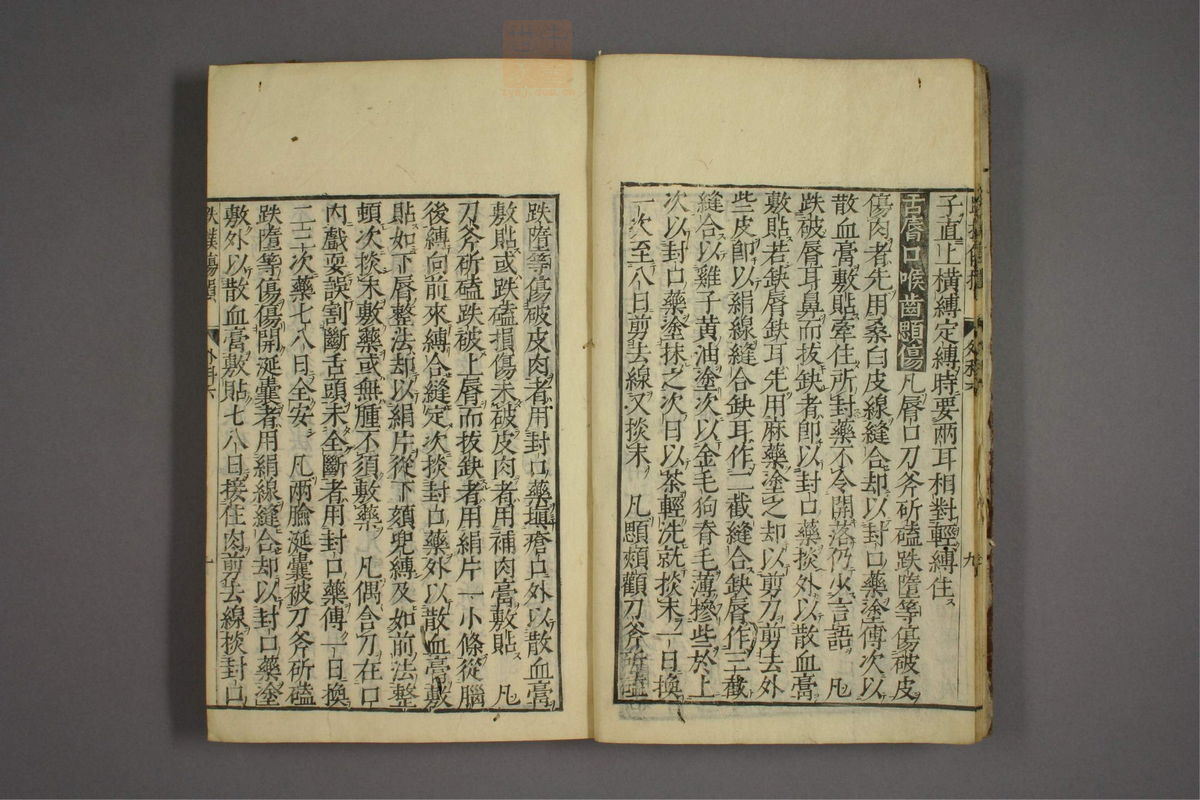 子直止橫縛定縛時要兩耳相對輕縛住
舌唇口喉齒顋傷凡唇口刀斧斫磕跌墮等傷破皮
傷肉者先用桑白皮線縫合却以封口藥塗傅次以
散血膏敷貼牽住所封藥不令開落仍少言語凡
跌破唇耳鼻而拔缺者即以封口藥掞外以散血膏
敷貼若缺唇缺耳先用麻藥塗之却以剪刀剪去外
些皮即以絹線縫合缺耳作二截縫合缺唇作三截
縫合以雞子黃油塗次以金毛狗脊毛薄摻些於上
次以封口藥塗抹之次日以茶輕洗就掞末一日換
一次至八日剪去線又掞末凡顋頰顴刀斧所磕
跌墮等傷破皮肉者用封口藥填瘡口外以散血膏
敷貼或跌磕損傷未破皮肉者用補肉膏敷貼凡
刀斧斫磕跌被上唇而拔缺者用絹片一小條從腦
後縛向前來縛合縫定次掞封口藥外以散血膏敷
貼如下唇整法却以絹片從下頦兜縛及如前法整
頓次掞末敷藥或無腫不須敷藥凡偶含刀在口
內戲耍誤割斷舌頭未全斷者用封口藥傅一日換
二三次藥七八日全安凡兩臉涎囊被刀斧斫磕
跌墮等傷傷開涎囊者用絹線縫合却以封口藥塗
敷外以散血膏敷貼七八日接住肉剪去線掞封口
外科六